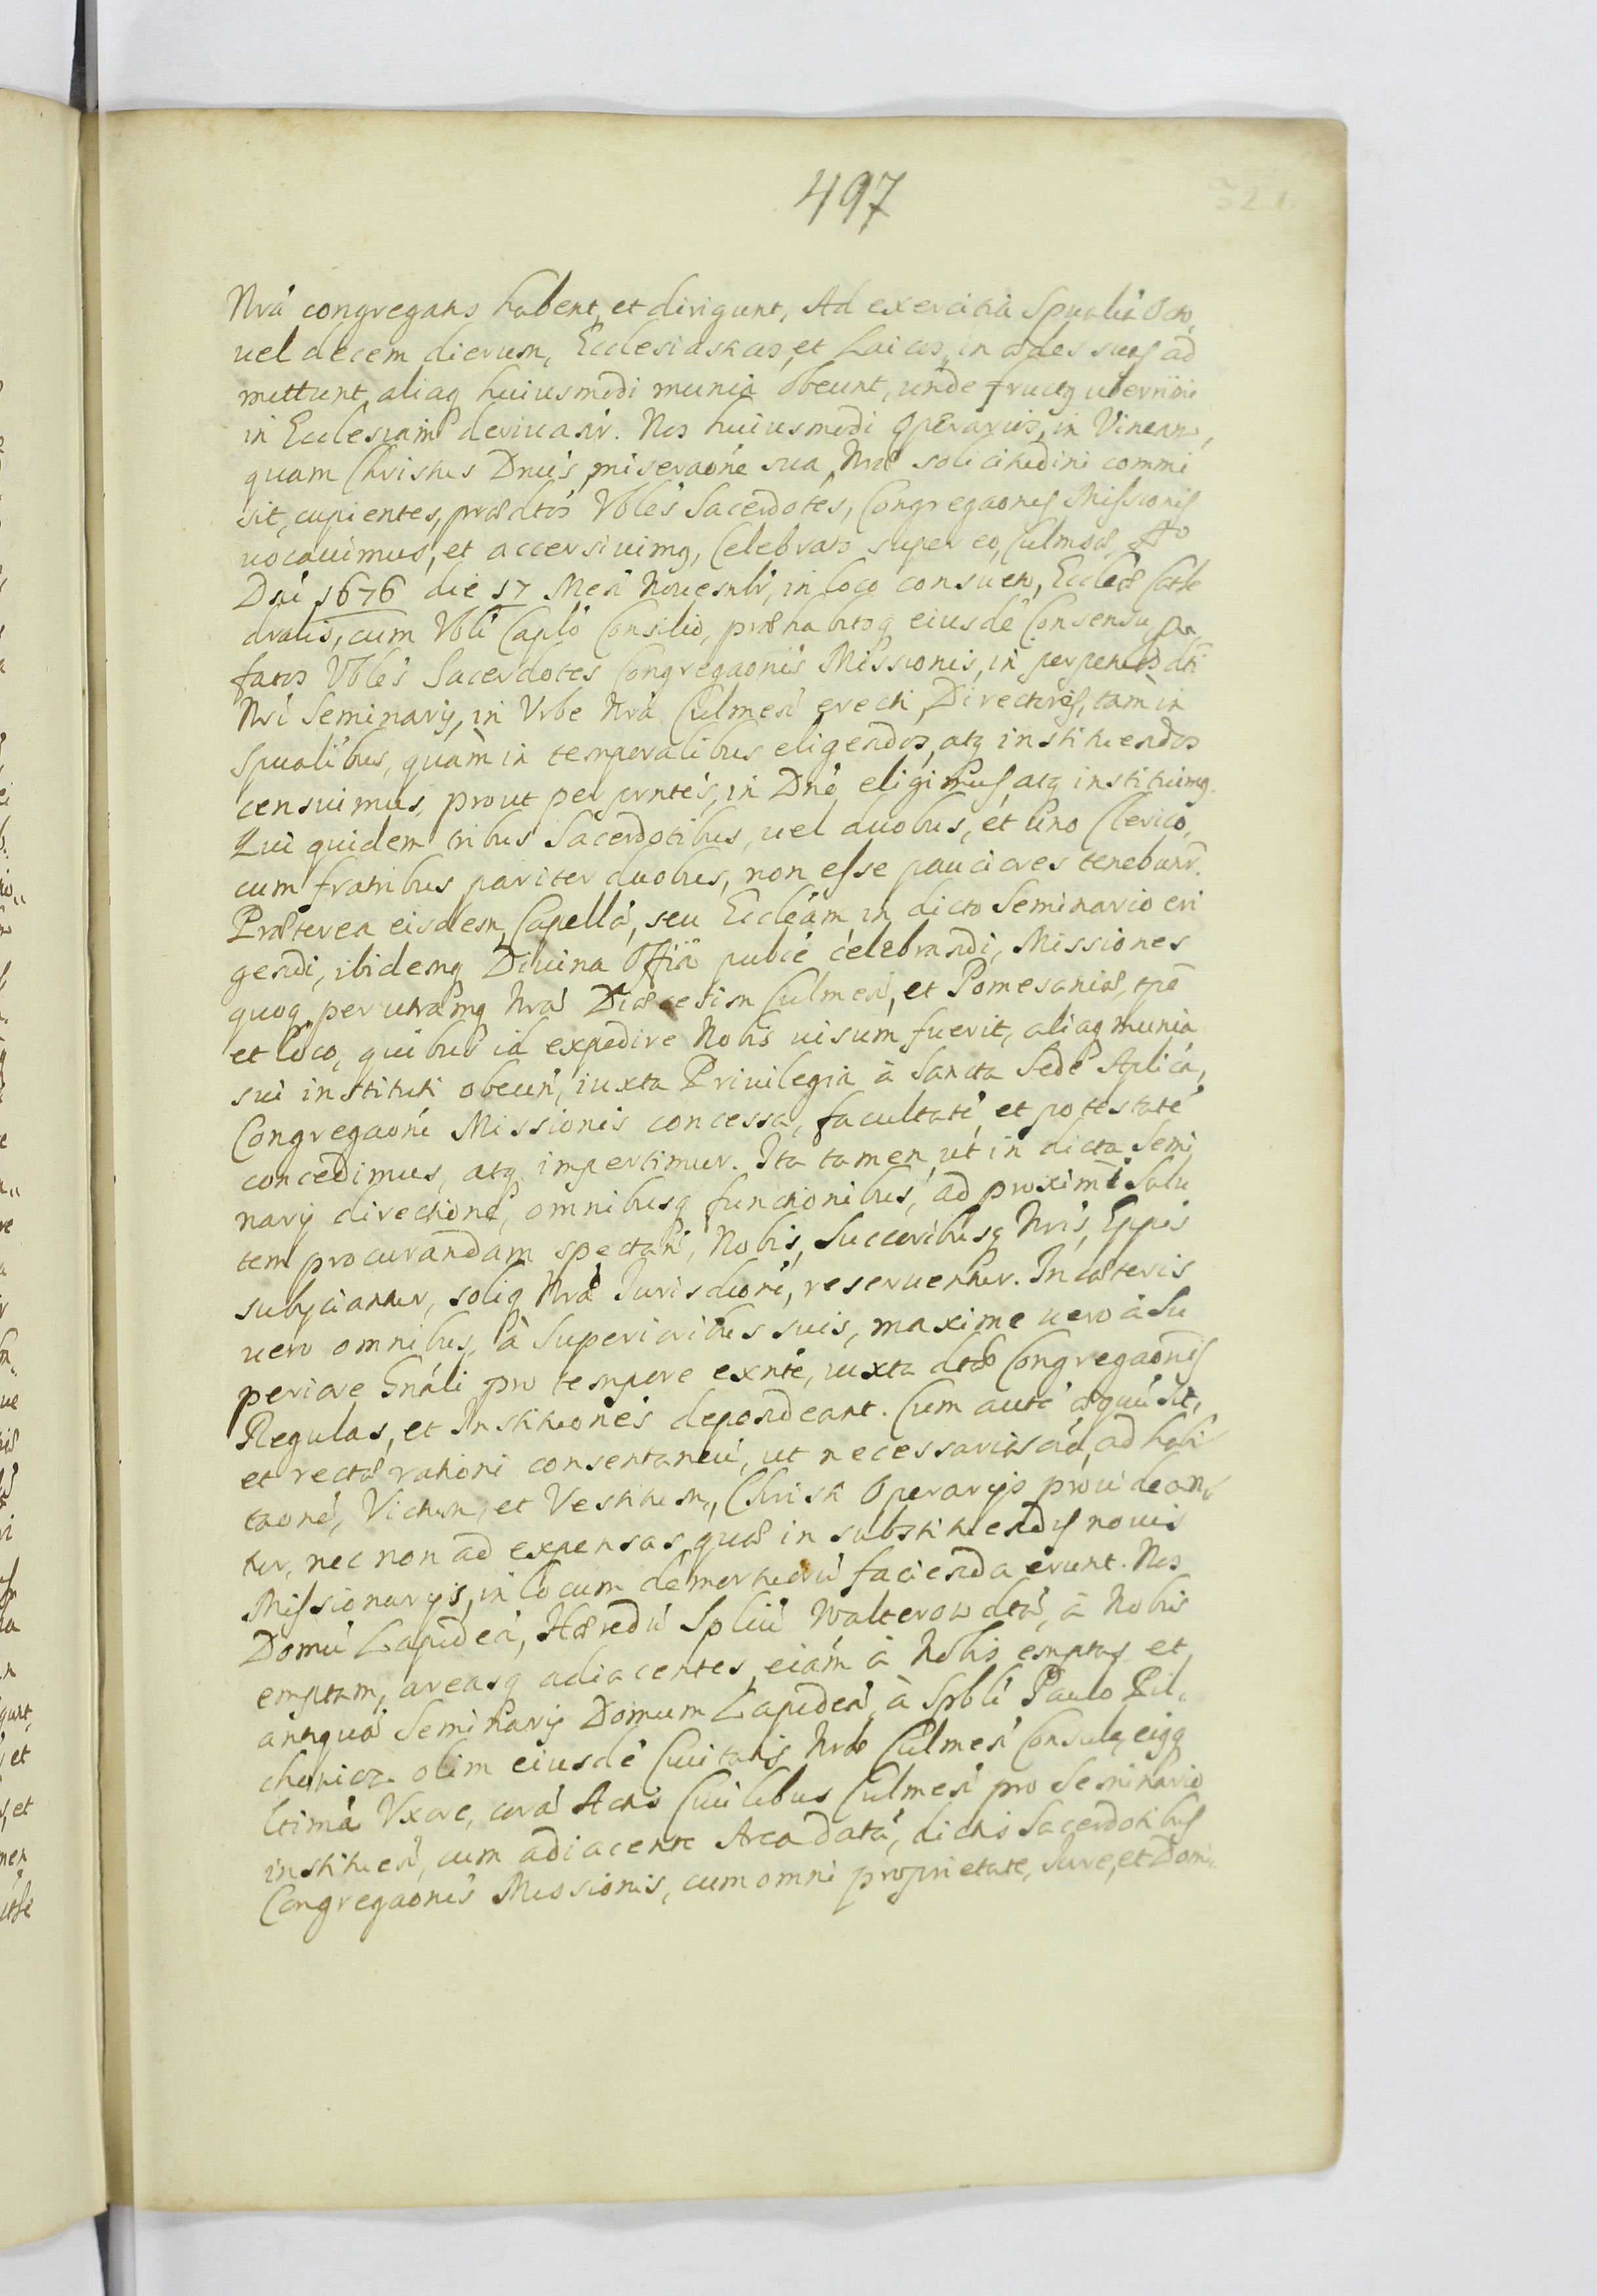 497
321.
Nrã congregatis habent, et dirigunt, Ad exercitia Spualia Octo,
uel decem dierum, Ecclesiasticos, et Laicos, in ædes suas ad
mittunt, aliaq huiusmodi munia obeunt, unde fructq uberrimi
in Ecclesiam deriuant̃. Nos huiusmodi Operarios, in Vineam,
quam Christus Dnus, miseraone sua, Nræ solicitudini commi
sit, cupientes, prædctos Vbles Sacerdotes, Congregaonis Missionis
uocauimus, et accersiuimq, Celebrato super eo, Culmsæ, Ao
Dni 1676 die 17 Mesi Nouembr, in loco consueto, Eccleæ Cathe
dralis, cum Vbli Caplo Consilio, præhabitoq eiusdē Consensu, præ
fatos Vbles Sacerdotes Congregaonis Missionis, in perpetuos dti
Nri Seminarij, in Vrbe Nra Culmeñ erecti, Directores, tam in
Spualibus, quàm in temporalibus eligendos, atq instituendos
censuimus, prout per prntes, in Dno eligimus, atq instituimq.
Qui quidem tribus Sacerdotibus, uel duobus, et Uno Clerico,
cum fratribus pariter duobus, non esse pauciores tenebunt̃.
Præterea eisdem, Capellã, seu Eccleam, in dicto Seminario eri
gendi, ibidemq Diuina Offia publce celebrandi, Missiones
quoq per utramq Nrã Diœcesim Culmeñ, et Pomesaniæ, tpē
et loco, quibus id expedire Nobis uisum fuerit, aliaq munia
sui instituti obeuñ, iuxta Priuilegia à Sancta Sede Aplica,
Congregaoni Missionis concessa, facultatē, et potestatē
concedimus, atq impertimur. Ita tamen, ut in dicta Semi
narij directione, omnibusq functionibus, ad proximi Salu
tem procurandam spectañ, Nobis, Succoribusq Nris, Eppis
subijciantur, soliq Nræ Jurisdioni, reseruentur. In cæteris
uero omnibus, à Superioribus suis, maxime uero à Su
periore Gnali pro tempore exnte, iuxta dtæ Congregaonis
Regulas, et Institutiones dependeant. Cum autē æquũ sit,
et rectæ rationi consentaneũ, ut necessaria oia, ad habi
taonē, Victum, et Vestitum, Christi Operarijs prouidean
tur, nec non ad expensas quæ in substituendis nouis
Missionarijs, in locum demortuorũ facienda erunt. Nos
Domũ Lapideã, Hæredũ Spliũ Walterow dtã, à Nobis
emptam, areasq adiacentes, eiam à Nobis emptas, et
antiquã Seminarij Domum Lapideã, à Spbli Paulo Pil
chowicz olim eiusdē Ciuitatis Nræ Culmeñ Consule, eiqq
ltima Vxore, corã Actis Ciuilibus Culmeñ pro Seminario
instituen, cum adiacente Area datã, dictis Sacerdotibus
Congregaonis Missionis, cum omni proprietate, Jure, et Domi